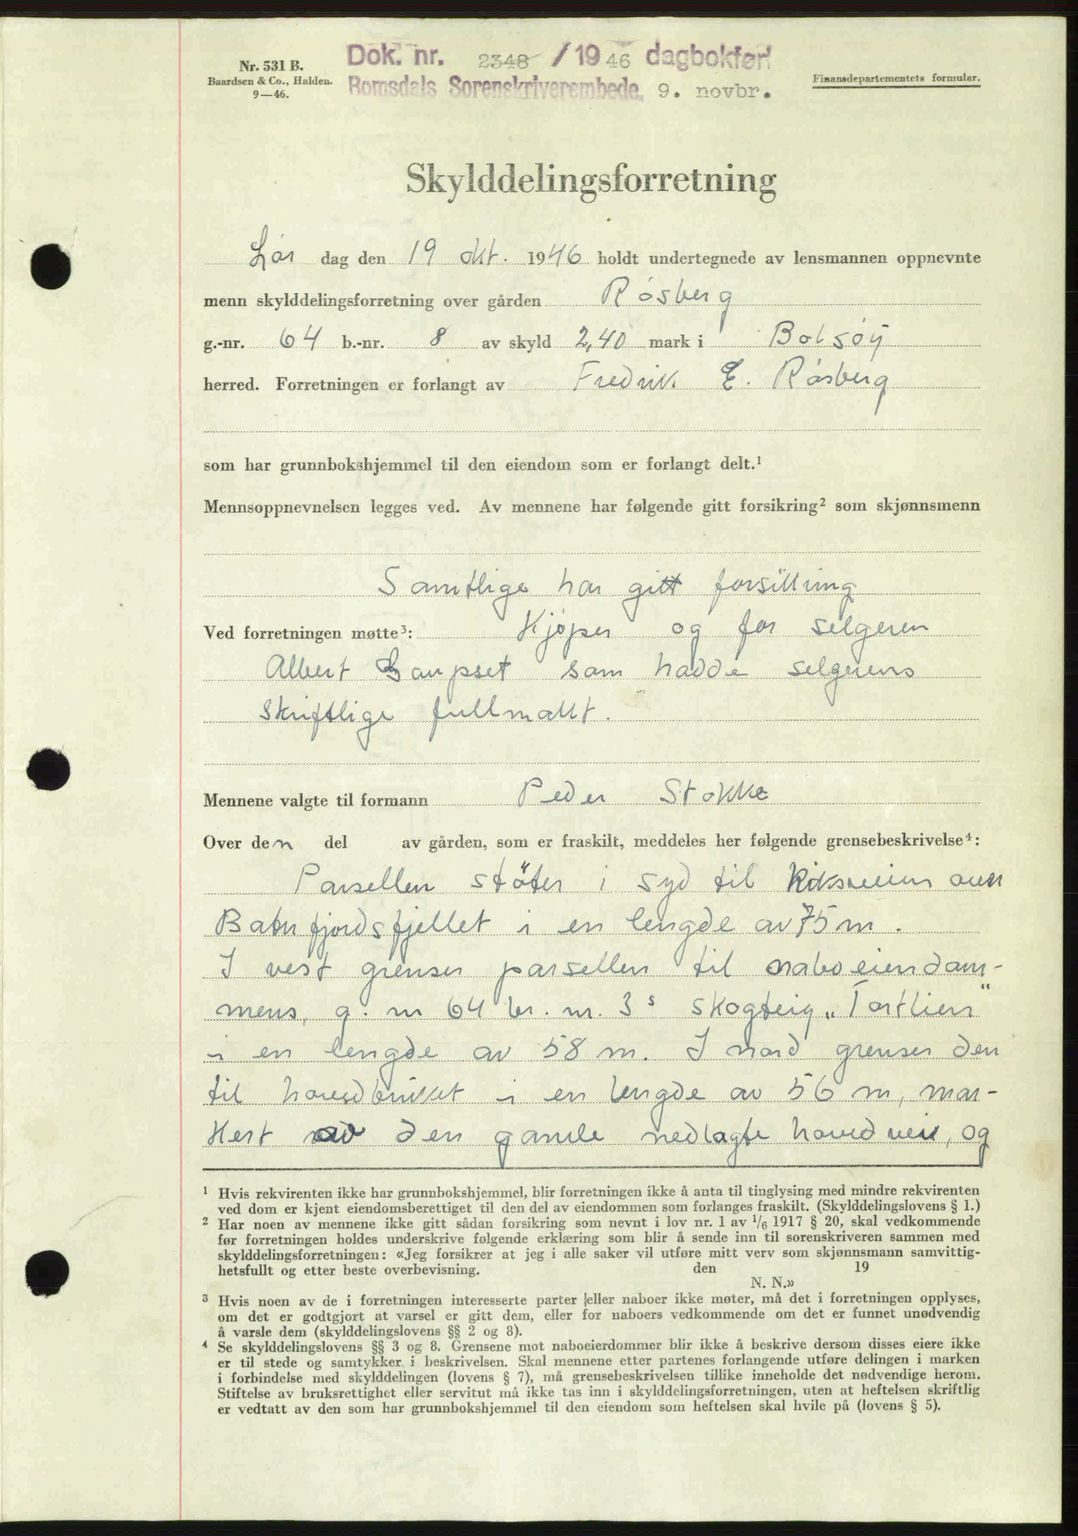 Nr. 531 B.
Baardsen & Co., Halden.
9—46.
Dok. nr. 2348 / 1946 dagbokført
Romsdals Sorenskriverembede, 9. novbr.
Finansdepartementets formular.
Skylddelingsforretning
Lør dag den 19 okt. 1946 holdt undertegnede av lensmannen oppnevnte
menn skylddelingsforretning over gården Røsberg
g.-nr. 64 b.-nr. 8 av skyld 2,40 mark i Bolsøy
herred. Forretningen er forlangt av Fredrik E. Røsberg
som har grunnbokshjemmel til den eiendom som er forlangt delt.¹
Mennsoppnevnelsen legges ved. Av mennene har følgende gitt forsikring² som skjønnsmenn
Samtlige har gitt forsikring
Ved forretningen møtte³: Kjøper og for selgeren
Albert Gaupset som hadde selgerens
skriftlige fullmakt.
Mennene valgte til formann Peder Stokke
Over den del av gården, som er fraskilt, meddeles her følgende grensebeskrivelse⁴:
Parsellen støter i syd til Riksveien over
Batnfjordsfjellet i en lengde av 75 m.
I vest grenser parsellen til naboeiendom-
mens, g. nr 64 br. nr. 3ˢ skogteig „Tortlien"
i en lengde av 58 m. I nord grenser den
til hovedbruket i en lengde av 56 m, mar-
kert av den gamle nedlagte hovedvei, og
¹ Hvis rekvirenten ikke har grunnbokshjemmel, blir forretningen ikke å anta til tinglysing med mindre rekvirenten
ved dom er kjent eiendomsberettiget til den del av eiendommen som forlanges fraskilt. (Skylddelingslovens § 1.)
² Har noen av mennene ikke gitt sådan forsikring som nevnt i lov nr. 1 av 1/6 1917 § 20, skal vedkommende
før forretningen holdes underskrive følgende erklæring som blir å sende inn til sorenskriveren sammen med
skylddelingsforretningen: «Jeg forsikrer at jeg i alle saker vil utføre mitt verv som skjønnsmann samvittig-
hetsfullt og etter beste overbevisning. den 19
N. N.»
³ Hvis noen av de i forretningen interesserte parter eller naboer ikke møter, må det i forretningen opplyses,
om det er godtgjort at varsel er gitt dem, eller for naboers vedkommende om det er funnet unødvendig
å varsle dem (skylddelingslovens §§ 2 og 8).
⁴ Se skylddelingslovens §§ 3 og 8. Grensene mot naboeierdommer blir ikke å beskrive dersom disses eiere ikke
er til stede og samtykker i beskrivelsen. Skal mennene etter partenes forlangende utføre delingen i marken
i forbindelse med skylddelingen (lovens § 7), må grensebeskrivelsen tillike inneholde det nødvendige herom.
Stiftelse av bruksrettighet eller servitut må ikke tas inn i skylddelingsforretningen, uten at heftelsen skriftlig
er vedtatt av den som har grunnbokshjemmel til den eiendom som heftelsen skal hvile på (lovens § 5).